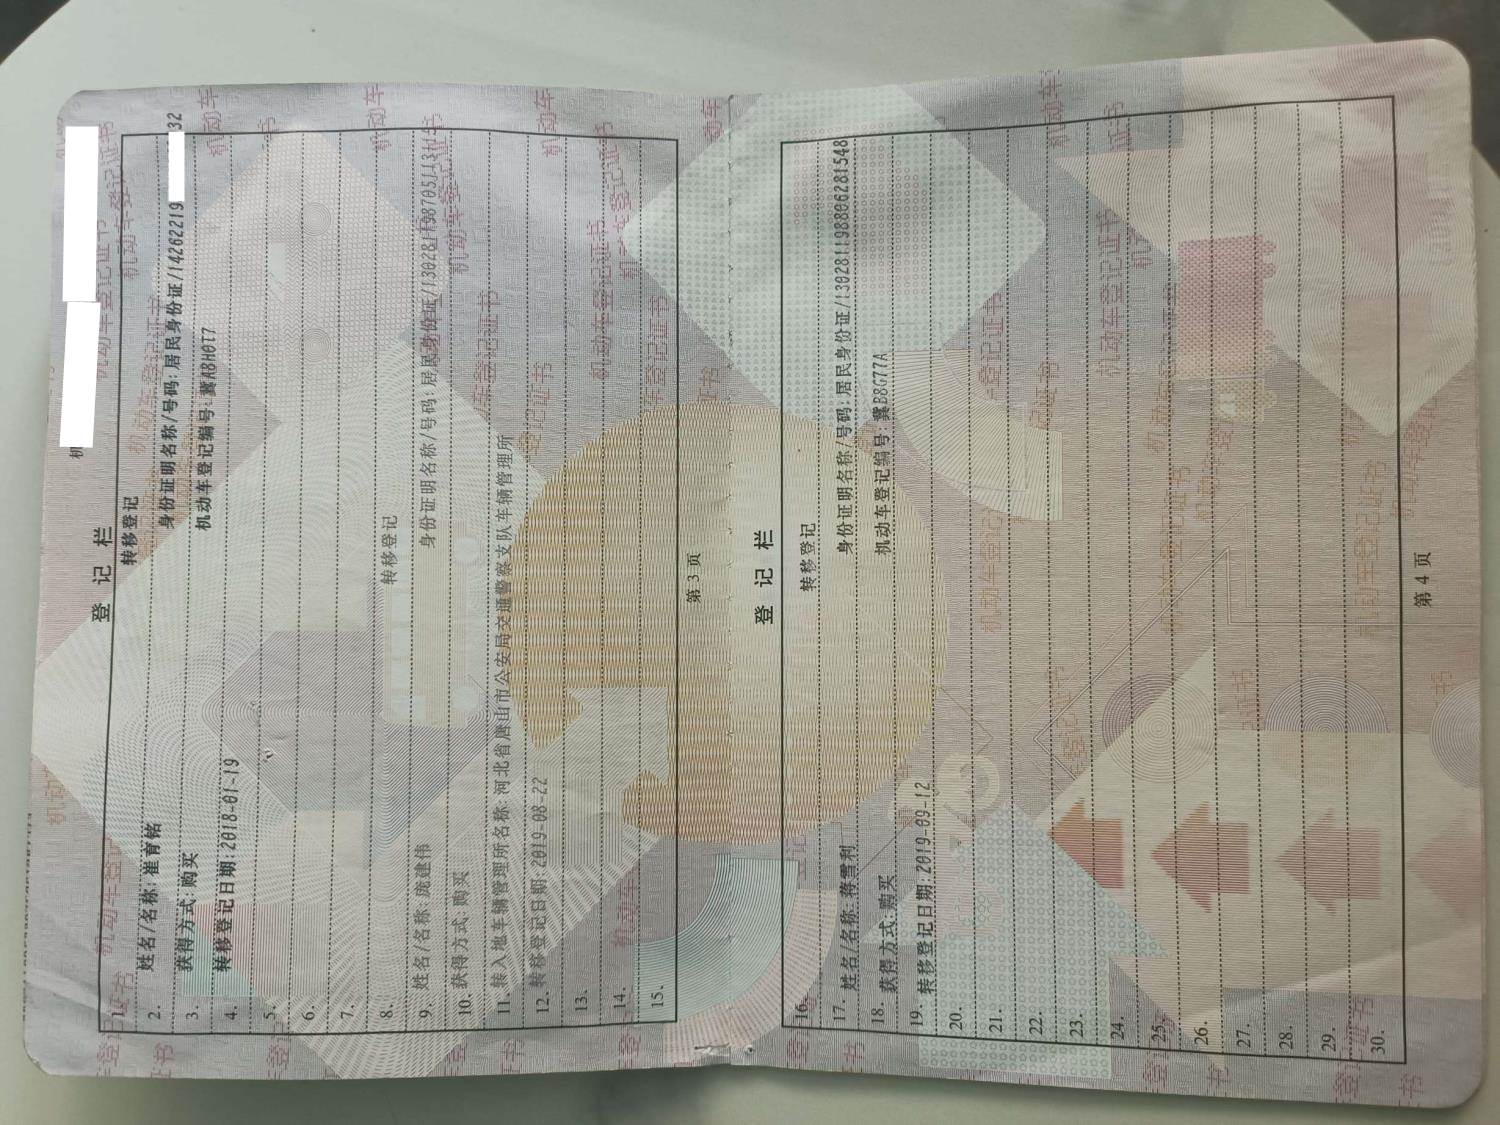 登 记 栏
1. 转移登记
2. 姓名/名称: 崔育铭 身份证明名称/号码: 居民身份证/14262219 32
3. 获得方式: 购买 机动车登记编号: 冀A8H0T7
4. 转移登记日期: 2018-01-19
5.
6.
7.
8. 转移登记
9. 姓名/名称: 庞建伟 身份证明名称/号码: 居民身份证/
10. 获得方式: 购买
11. 转入地车辆管理所名称: 河北省唐山市公安局交通警察支队车辆管理所
12. 转移登记日期: 2019-08-22
13.
14.
15.
第 3 页
登 记 栏
16. 转移登记
17. 姓名/名称: 蒋雪利 身份证明名称/号码: 居民身份证/130281198806281548
18. 获得方式: 购买 机动车登记编号: 冀B8G77A
19. 转移登记日期: 2019-09-12
20.
21.
22.
23.
24.
25.
26.
27.
28.
29.
30.
第 4 页